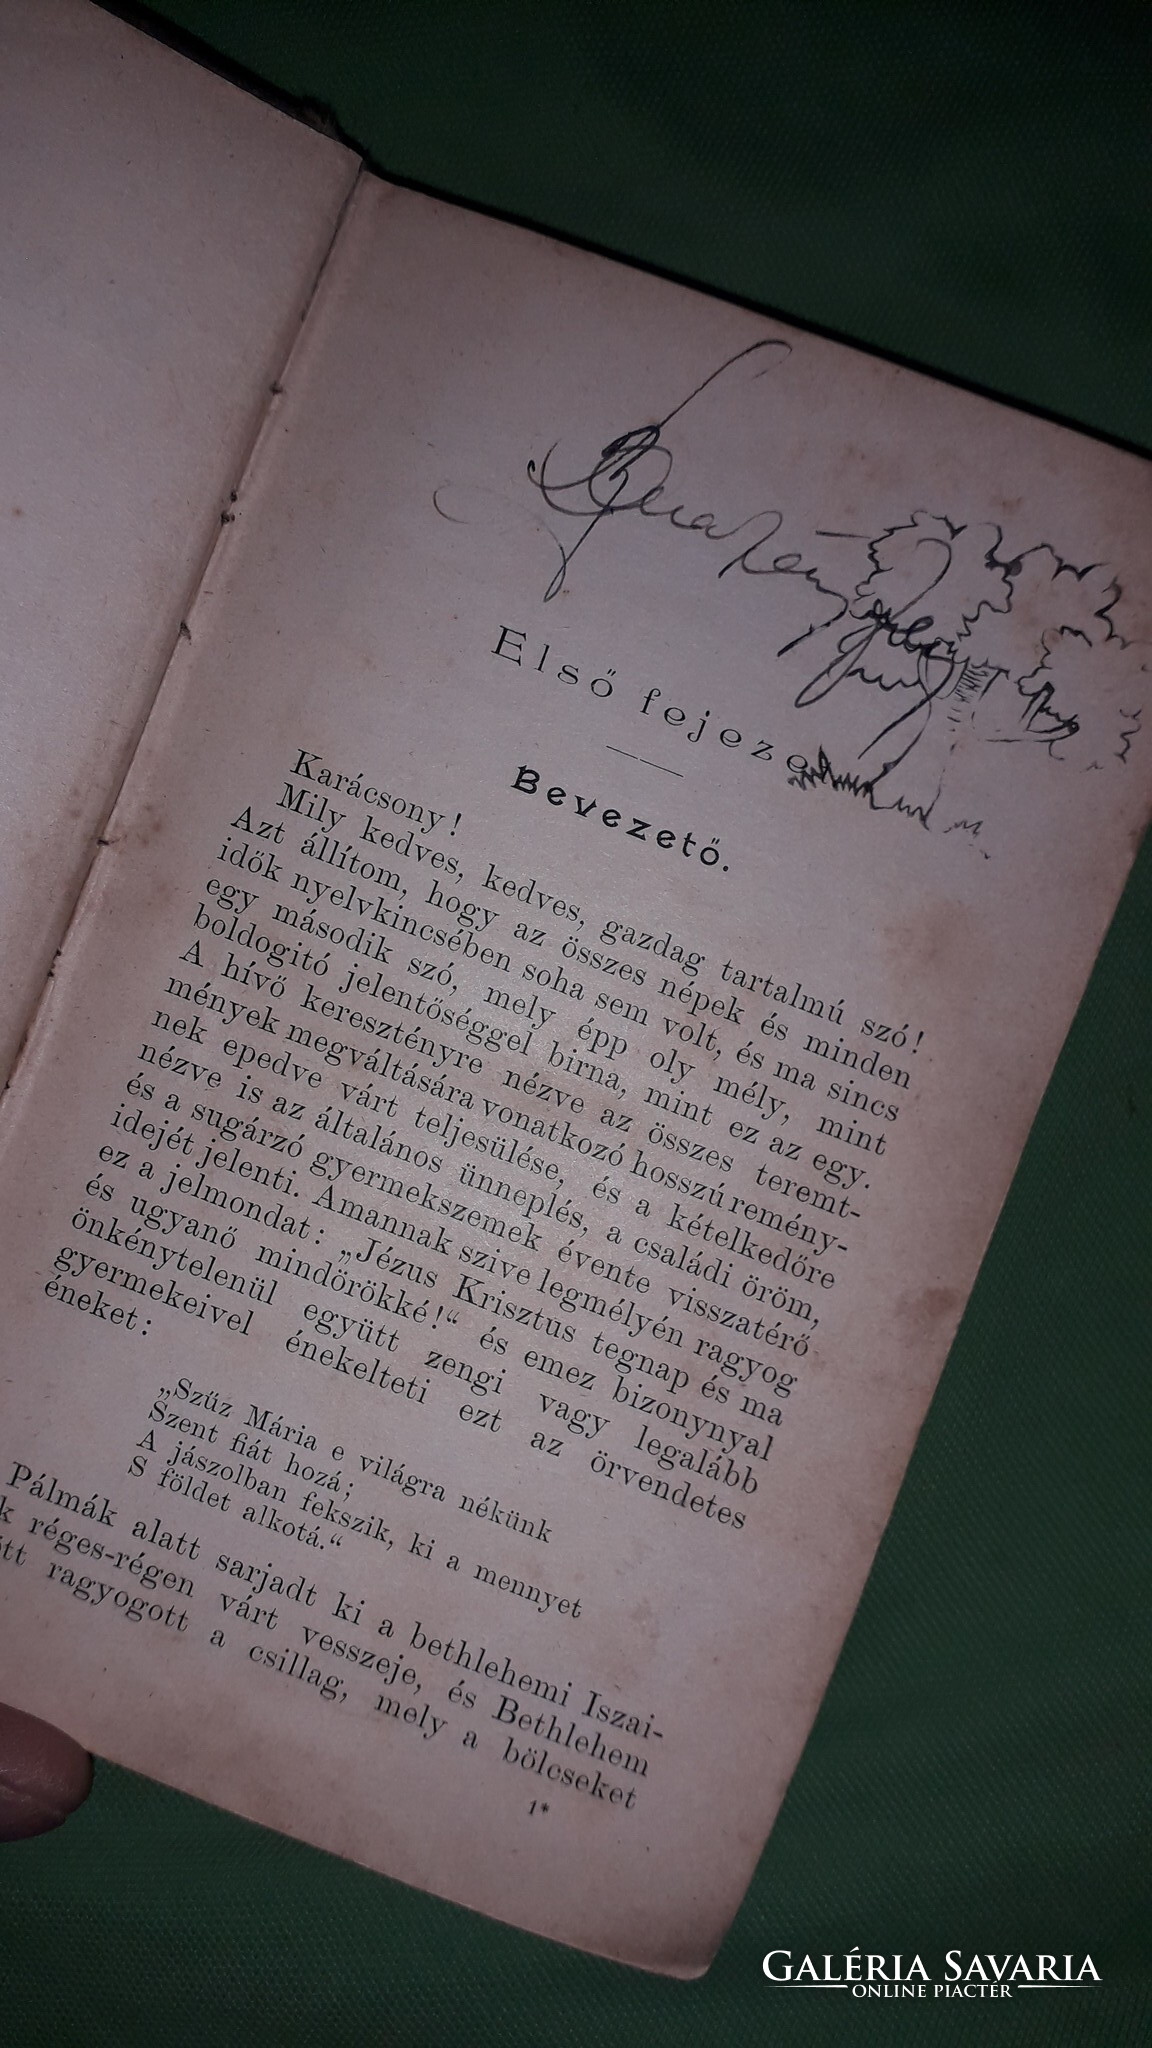 Első fejezet
Bevezető.
Karácsony!
Mily kedves, kedves, gazdag tartalmú szó!
Azt állítom, hogy az összes népek és minden
idők nyelvkincsében soha sem volt, és ma sincs
egy második szó, mely épp oly mély, mint
boldogitó jelentőséggel birna, mint ez az egy.
A hívő keresztényre nézve az összes teremt-
mények megváltására vonatkozó hosszú remény-
nek epedve várt teljesülése, és a kételkedőre
nézve is az általános ünneplés, a családi öröm,
és a sugárzó gyermekszemek évente visszatérő
idejét jelenti. Amannak szive legmélyén ragyog
ez a jelmondat: „Jézus Krisztus tegnap és ma
és ugyanő mindörökké!“ és emez bizonynyal
önkénytelenül együtt zengi vagy legalább
gyermekeivel énekelteti ezt az örvendetes
éneket:
„Szűz Mária e világra nékünk
Szent fiát hozá;
A jászolban fekszik, ki a mennyet
S földet alkotá.“
Pálmák alatt sarjadt ki a bethlehemi Iszai-
k réges-régen várt vesszeje, és Bethlehem
ragyogott a csillag, mely a bölcseket
1*
GALÉRIA SAVARIA
ONLINE PIACTÉR